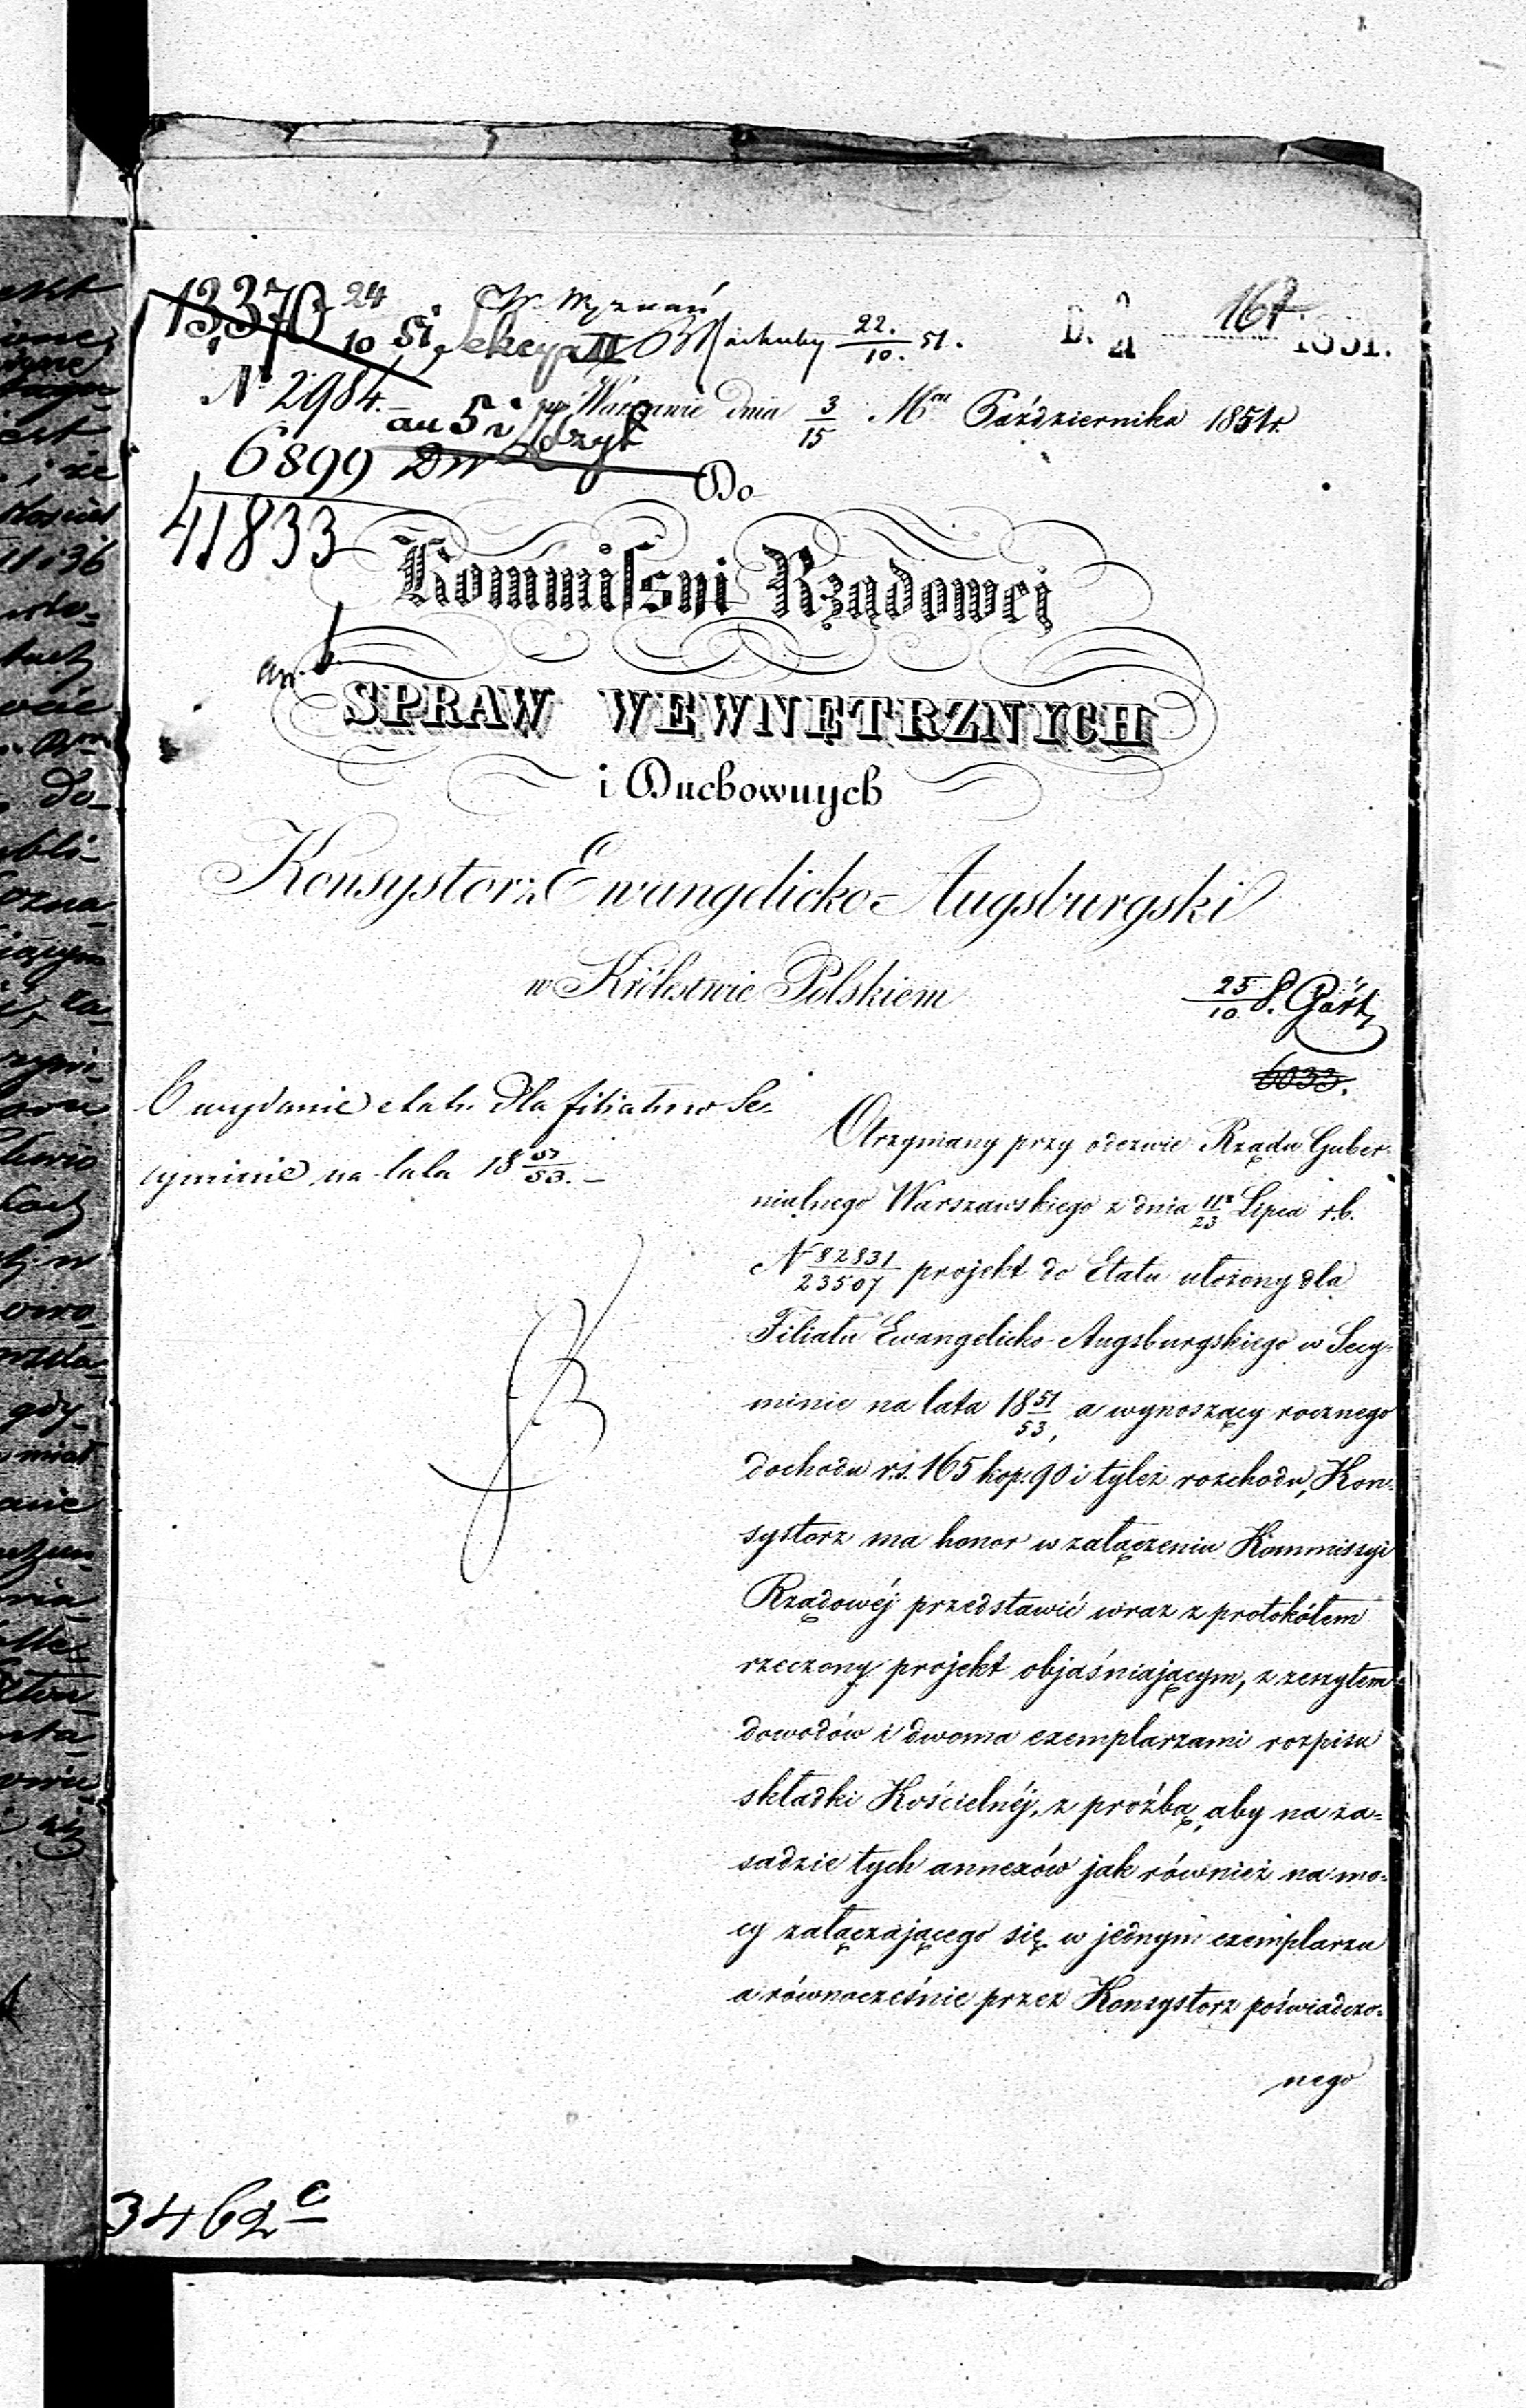 13,370 24/10 51
W. Wyznań
Sekcya III 22./10. 51.
D. 2/4 167 1851.
N 2984.
w Warszawie dnia 3/15 Mca Października 1851 r.
au 5 i
6899 DW
Do
41833
Kommissyi Rządowej
an. 1.
SPRAW WEWNĘTRZNYCH
i Duchownych
Konsystorz Ewangelicko-Augsburgski
w Królestwie Polskiem
25/10 8.
6033.
O wydanie etatu dla filiatu w Se-
cyminie na lata 18 51/53. –
Otrzymany przy odezwie Rządu Guber-
nialnego Warszawskiego z dnia 11/23 Lipca r.b.
N 82831/23507 projekt do Etatu ułożony dla
Filiatu Ewangelicko-Augsburgskiego w Secy-
minie na lata 18 51/53, a wynoszący rocznego
dochodu r.s. 165 kop. 90 i tyleż rozchodu, Kon-
systorz ma honor w załączeniu Kommissyi
Rządowéj przedstawić wraz z protokółem
rzeczony projekt objaśniającym, z zeszytem
dowodów i dwoma exemplarzami rozpisu
składki Kościelnéj, z proźbą, aby na za-
sadzie tych annexów jak również na mo-
cy załączającego się w jednym exemplarzu
a równocześnie przez Konsystorz poświadczo-
nego
3462 c